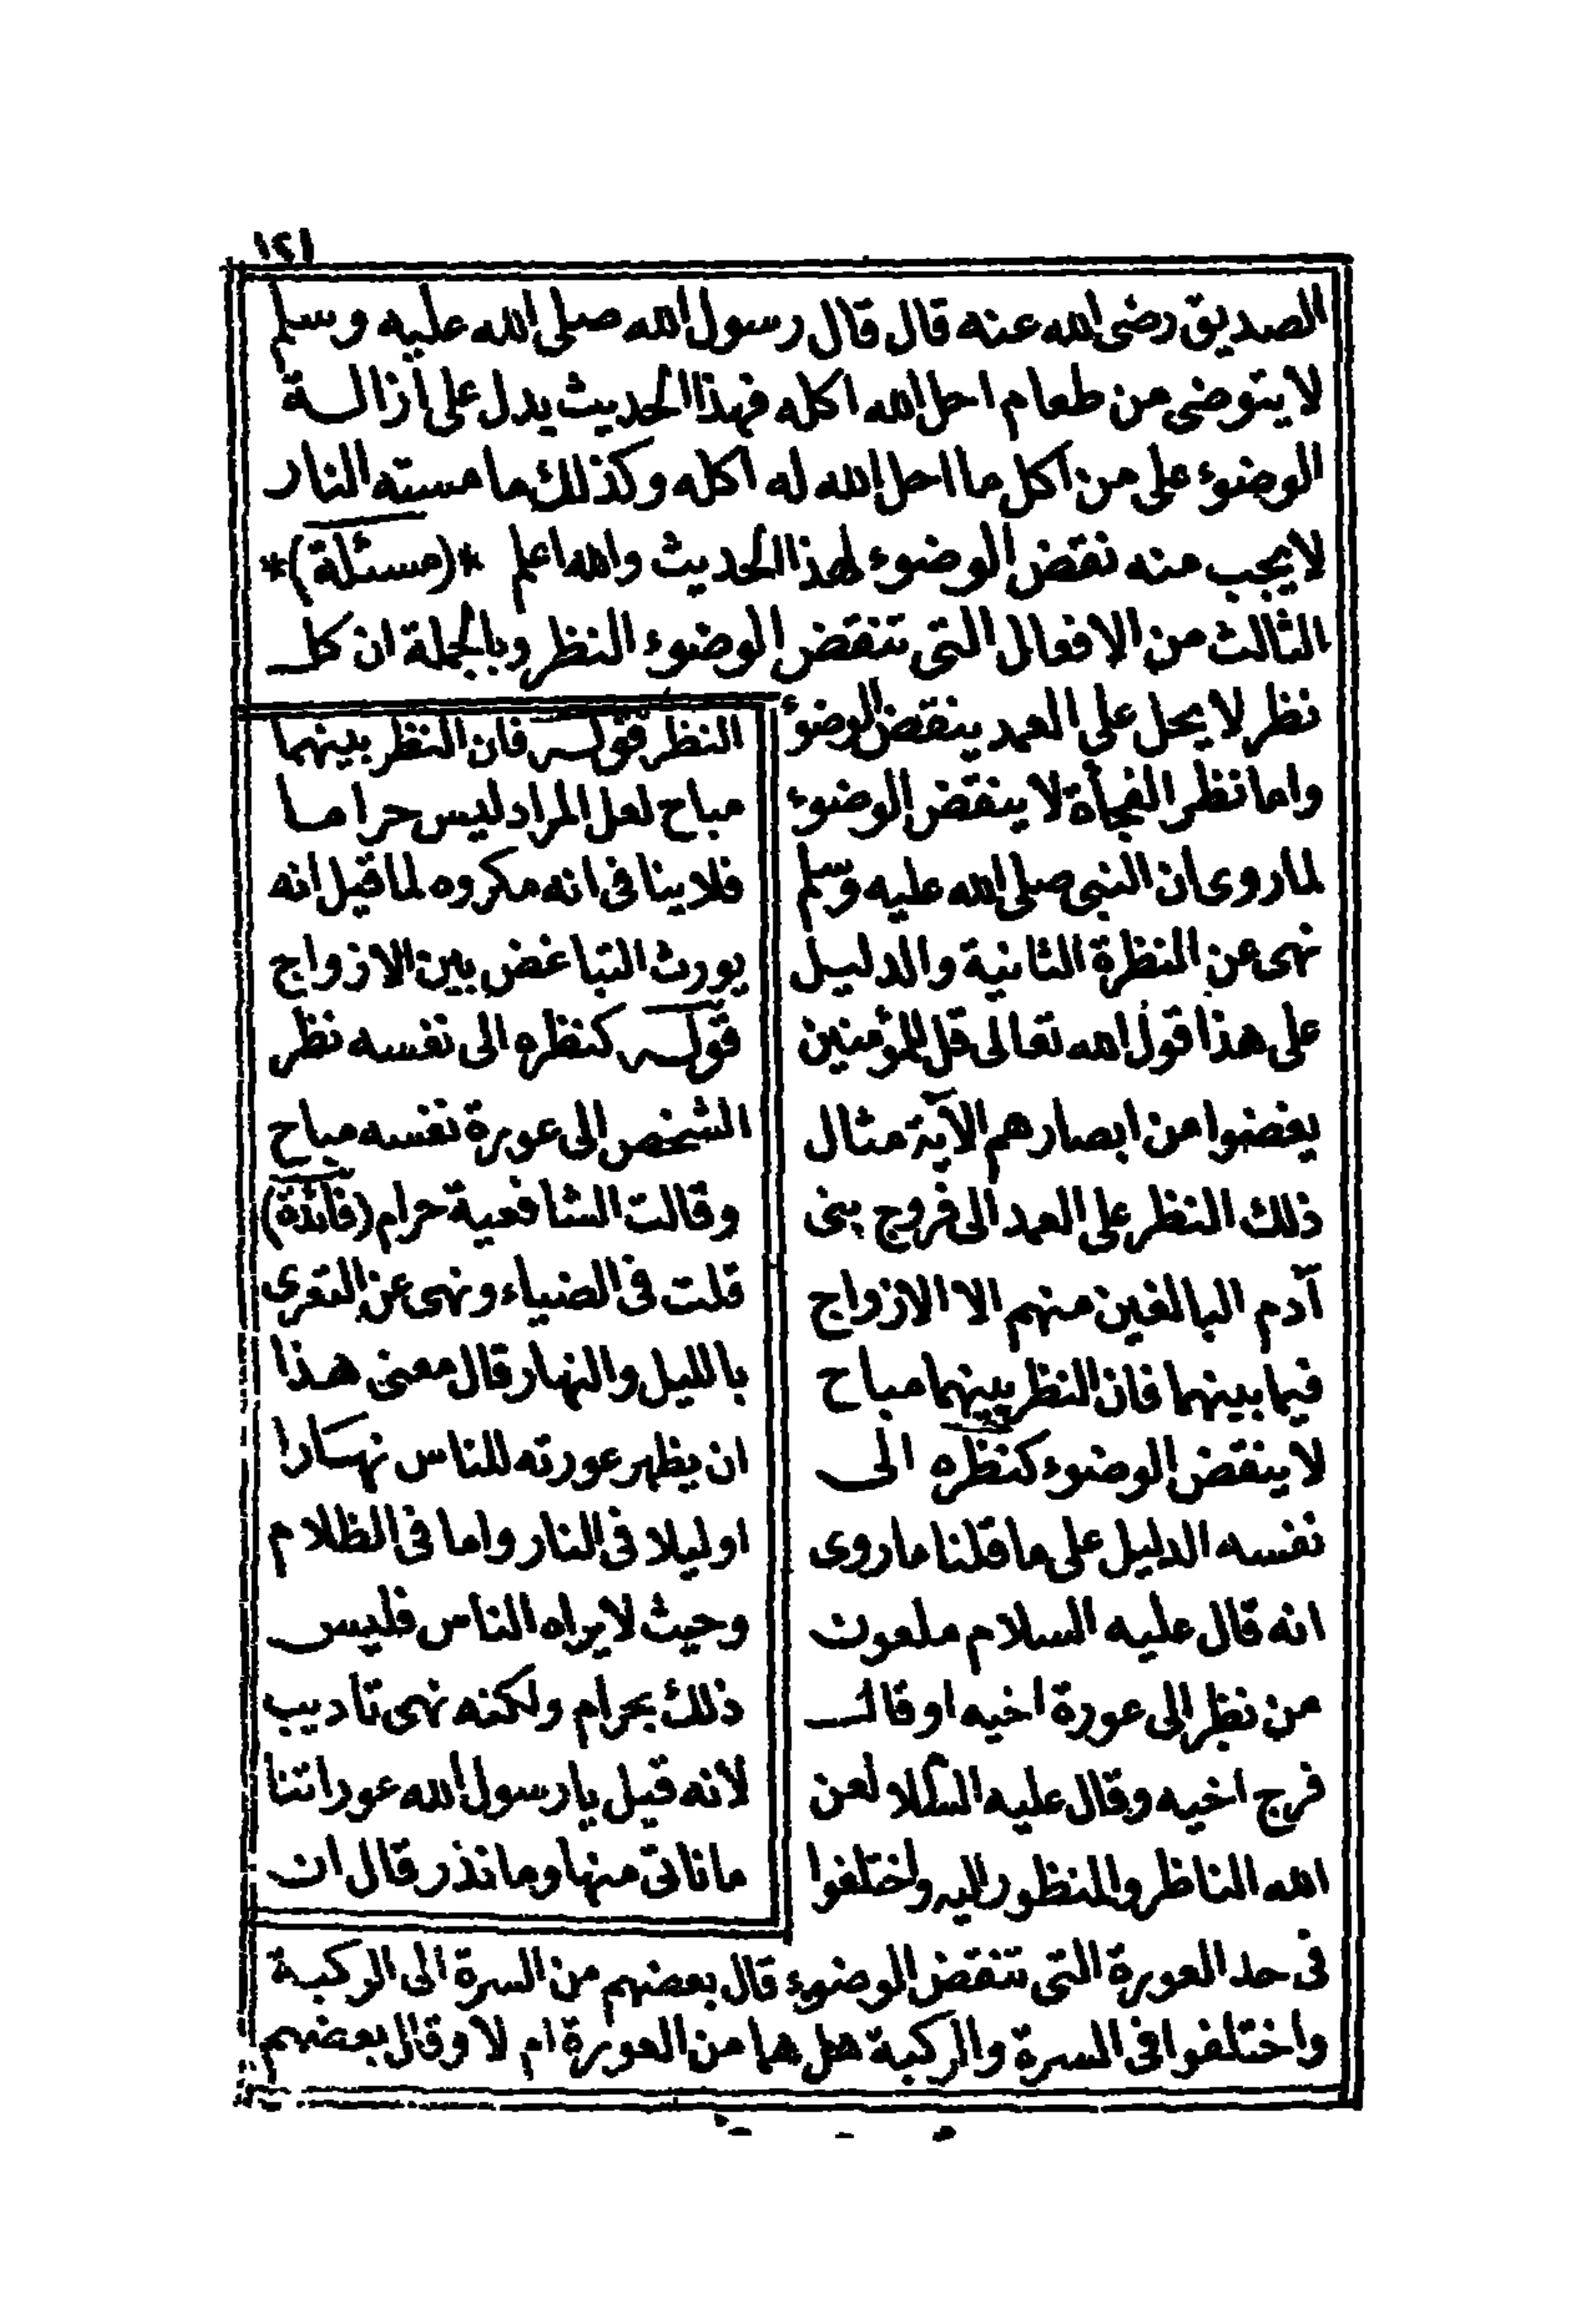 ١٤١
الصديق رضى الله عنه قال قال رسول الله صلى الله عليه وسلم
لا يتوضى من طعام احل الله اكله فهذا الحديث يدل على ازالة
الوضوء على من اكل ما احل الله له اكله وكذلك ما مسته النار
لا يجب منه نقض الوضوء لهذا الحديث والله اعلم *(مسئلة)*
الثالث من الافعال التى تنقض الوضوء النظر وبالجملة ان كل
نظر لا يحل على العمد ينقض الوضوء
واما نظر الفجأة لا ينقض الوضوء
لما روى ان النبى صلى الله عليه وسلم
نهى عن النظرة الثانية والدليل
على هذا قول الله تعالى قل للمؤمنين
يغضوا من ابصارهم الآية مثال
ذلك النظر على العمد الى فروج بنى
آدم البالغين منهم الا الازواج
فيما بينهما فان النظر بينهما مباح
لا ينقض الوضوء كنظره الى
نفسه الدليل على ما قلنا ما روى
انه قال عليه السلام ملعون
من نظر الى عورة اخيه او قال
فرج اخيه وقال عليه السلام لعن
الله الناظر والمنظور اليه واختلفوا
النظر قوله فان النظر بينهما
مباح لعل المراد ليس حراما
فلا ينافى انه مكروه لما قيل انه
يورث التباغض بين الازواج
قوله كنظره الى نفسه نظر
الشخص الى عورة نفسه مباح
وقالت الشافعية حرام (فائدة)
قلت فى الضياء ونهى عن التعرى
بالليل والنهار قال معنى هذا
ان يظهر عورته للناس نهارا
او ليلا فى النار واما فى الظلام
وحيث لا يراه الناس فليس
ذلك بحرام ولكنه نهى تاديب
لأنه قيل يا رسول الله عوراتنا
ما ناتى منها وما نذر قال ان
فى حد العورة التى تنقض الوضوء قال بعضهم من السرة الى الركبة
واختلفوا فى السرة والركبة هل هما من العورة ام لا وقال بعضهم